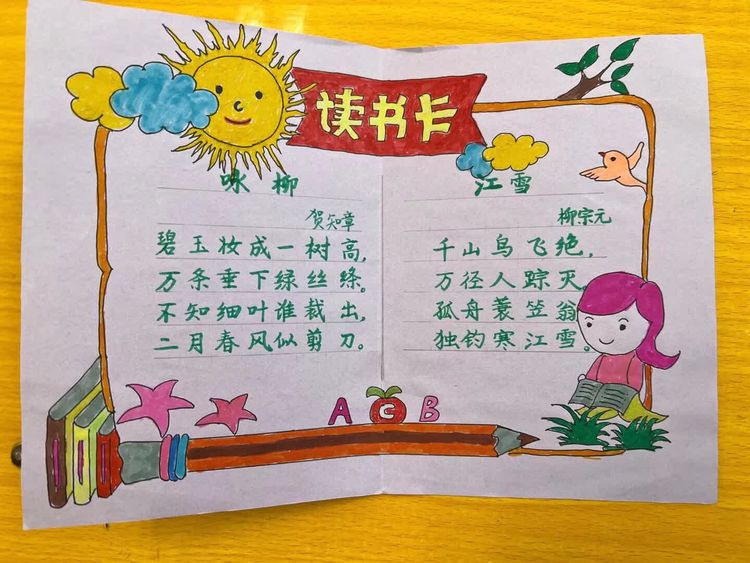 读书卡
咏柳
贺知章
碧玉妆成一树高,
万条垂下绿丝绦。
不知细叶谁裁出,
二月春风似剪刀。
江雪
柳宗元
千山鸟飞绝,
万径人踪灭。
孤舟蓑笠翁
独钓寒江雪。
A C B